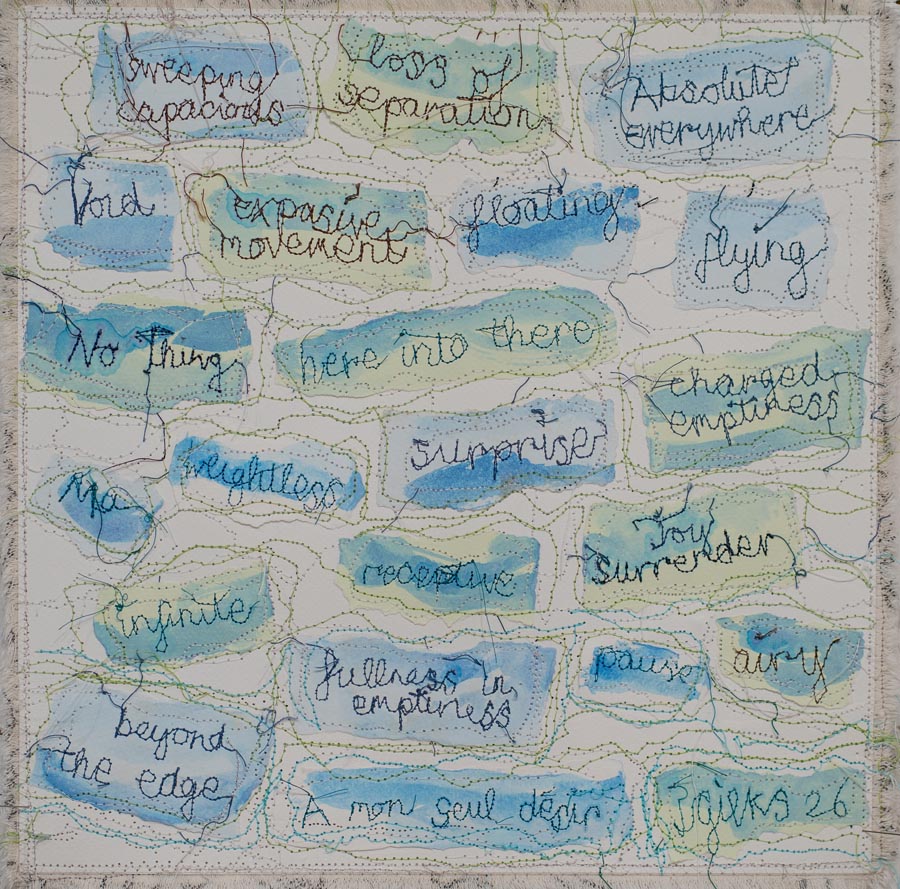 sweeping
capacious
loss of
separation
Absolute
everywhere
Void
expasive
movement
floating
flying
No Thing
here into there
charged
emptiness
surprise
Ma
weightless
Joy
surrender
receptive
infinite
fullness in
emptiness
pause
airy
beyond
the edge
A mon seul désir
26